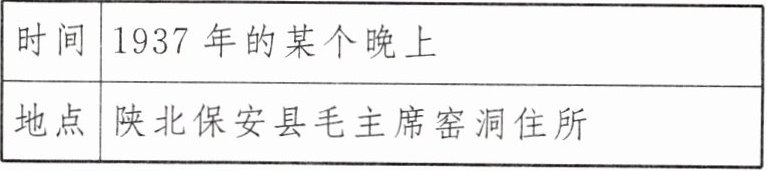 时间 1937 年的某个晚上
地点 陕北保安县毛主席窑洞住所